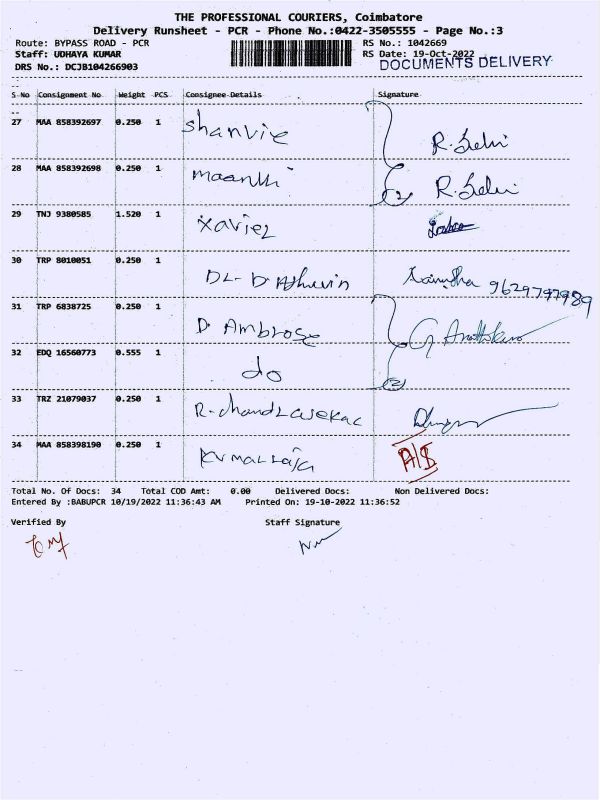 THE PROFESSIONAL COURIERS, Coimbatore
Delivery Runsheet - PCR - Phone No.:0422-3505555 - Page No.:3
Route: BYPASS ROAD - PCR RS No.: 1042669
Staff: UDHAYA KUMAR RS Date: 19-Oct-2022
DRS No.: DCJB104266903 DOCUMENTS DELIVERY
S No Consignment No Weight PCS Consignee Details Signature
27 MAA 858392697 0.250 1 Shanvie R. Selvi
28 MAA 858392698 0.250 1 maanthi R. Selvi
29 TNJ 9380585 1.520 1 xavier
30 TRP 8010051 0.250 1 DL- D. Ashwin 9629797989
31 TRP 6838725 0.250 1 D. Ambrose
32 EDQ 16560773 0.555 1 do
33 TRZ 21079037 0.250 1 R. chandrasekar
34 MAA 858398190 0.250 1 kumarraja A/S
Total No. Of Docs: 34 Total COD Amt: 0.00 Delivered Docs: Non Delivered Docs:
Entered By :BABUPCR 10/19/2022 11:36:43 AM Printed On: 19-10-2022 11:36:52
Verified By Staff Signature